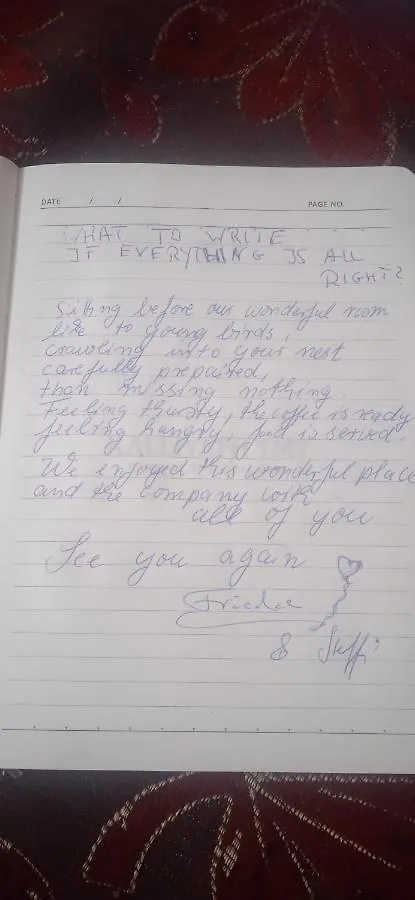 DATE / /
PAGE NO.
WHAT TO WRITE
IF EVERYTHING IS ALL
RIGHT?
Sitting before our wonderful room
like to young birds,
crawling into your nest
carefully prepaired,
than missing nothing.
Feeling thursty, the coffee is ready
feeling hungry, food is served.
We enjoyed this wonderful place
and the company with
all of you
See you again
Frieda
& Steffi